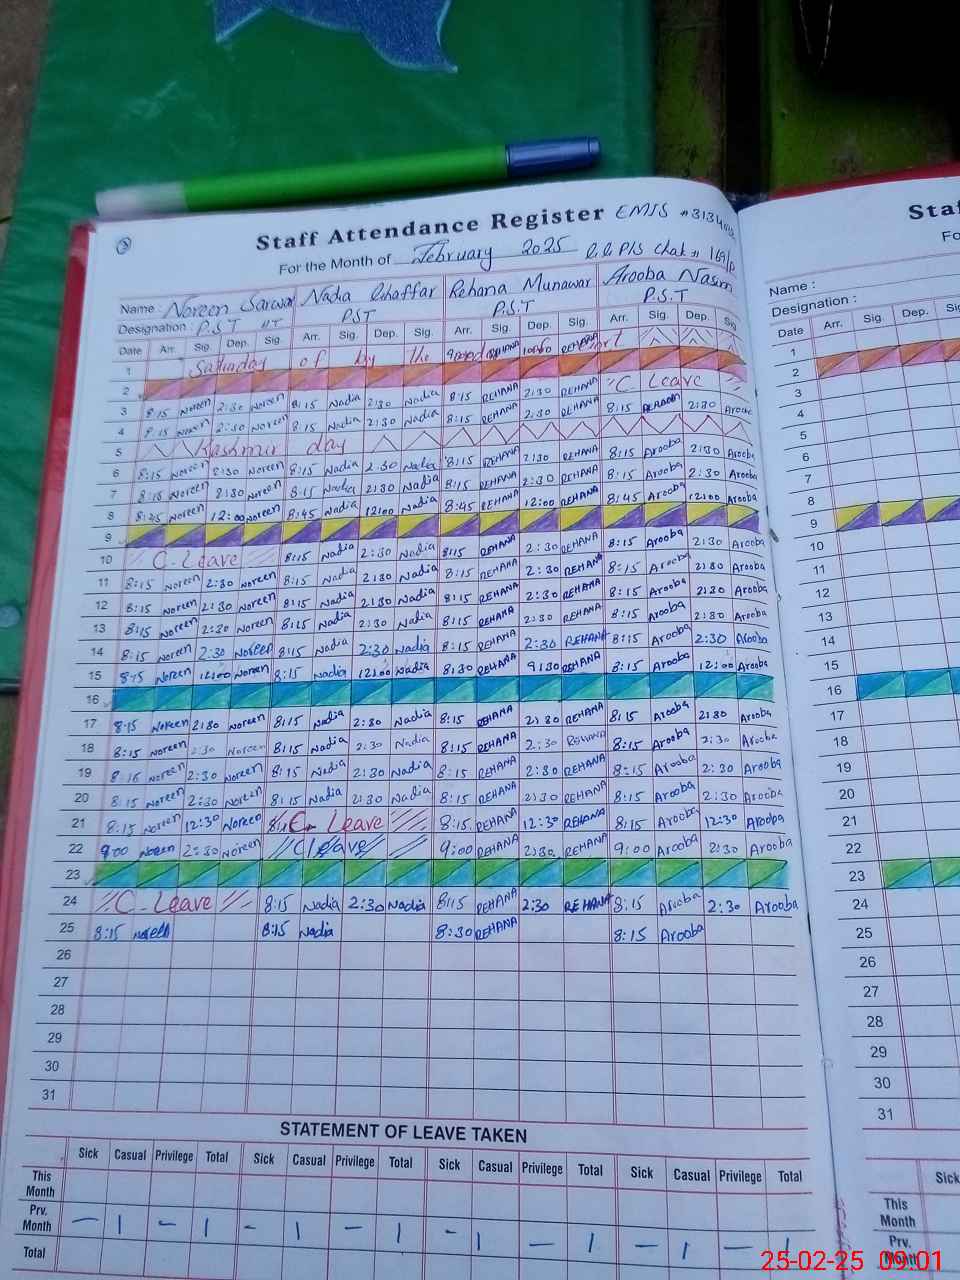 Staff Attendance Register EMIS
For the Month of February 2025 Chak # 169/P
Name : Noreen Sarwar Nadia Ghaffar Rehana Munawar Arooba Nasim
Designation : P.S.T PST P.S.T P.S.T
Date Arr. Sig. Dep. Sig. Arr. Sig. Dep. Sig. Arr. Sig. Dep. Sig. Arr. Sig. Dep. Sig.
1 Saturday of by the REHANA REHANA
2
3 8:15 Noreen 2:30 Noreen 8:15 Nadia 2:30 Nadia 8:15 REHANA 2:30 REHANA C. Leave
4 8:15 Noreen 2:30 Noreen 8:15 Nadia 2:30 Nadia 8:15 REHANA 2:30 REHANA 8:15 2:30 Arooba
5 Kashmir day
6 8:15 Noreen 2:30 Noreen 8:15 Nadia 2:30 Nadia 8:15 REHANA 2:30 REHANA 8:15 Arooba 2:30 Arooba
7 8:15 Noreen 2:30 Noreen 8:15 Nadia 2:30 Nadia 8:15 REHANA 2:30 REHANA 8:15 Arooba 2:30 Arooba
8 8:45 Noreen 12:00 Noreen 8:45 Nadia 12:00 Nadia 8:45 REHANA 12:00 REHANA 8:45 Arooba 12:00 Arooba
9
10 C. Leave 8:15 Nadia 2:30 Nadia 8:15 REHANA 2:30 REHANA 8:15 Arooba 2:30 Arooba
11 8:15 Noreen 2:30 Noreen 8:15 Nadia 2:30 Nadia 8:15 REHANA 2:30 REHANA 8:15 Arooba 2:30 Arooba
12 8:15 Noreen 2:30 Noreen 8:15 Nadia 2:30 Nadia 8:15 REHANA 2:30 REHANA 8:15 Arooba 2:30 Arooba
13 8:15 Noreen 2:30 Noreen 8:15 Nadia 2:30 Nadia 8:15 REHANA 2:30 REHANA 8:15 Arooba 2:30 Arooba
14 8:15 Noreen 2:30 Noreen 8:15 Nadia 2:30 Nadia 8:15 REHANA 2:30 REHANA 8:15 Arooba 2:30 Arooba
15 8:15 Noreen 12:00 Noreen 8:15 Nadia 12:00 Nadia 8:30 REHANA 9:30 REHANA 8:15 Arooba 12:00 Arooba
16
17 8:15 Noreen 2:30 Noreen 8:15 Nadia 2:30 Nadia 8:15 REHANA 2:30 REHANA 8:15 Arooba 2:30 Arooba
18 8:15 Noreen 2:30 Noreen 8:15 Nadia 2:30 Nadia 8:15 REHANA 2:30 REHANA 8:15 Arooba 2:30 Arooba
19 8:15 Noreen 2:30 Noreen 8:15 Nadia 2:30 Nadia 8:15 REHANA 2:30 REHANA 8:15 Arooba 2:30 Arooba
20 8:15 Noreen 2:30 Noreen 8:15 Nadia 2:30 Nadia 8:15 REHANA 2:30 REHANA 8:15 Arooba 2:30 Arooba
21 8:15 Noreen 12:30 Noreen C. Leave 8:15 REHANA 12:30 REHANA 8:15 Arooba 12:30 Arooba
22 9:00 Noreen 2:30 Noreen C Leave 9:00 REHANA 2:30 REHANA 9:00 Arooba 2:30 Arooba
23
24 C. Leave 8:15 Nadia 2:30 Nadia 8:15 REHANA 2:30 REHANA 8:15 Arooba 2:30 Arooba
25 8:15 Noreen 8:15 Nadia 8:30 REHANA 8:15 Arooba
26
27
28
29
30
31
STATEMENT OF LEAVE TAKEN
Sick Casual Privilege Total Sick Casual Privilege Total Sick Casual Privilege Total Sick Casual Privilege Total
This Month
Prv. Month — 1 — 1 - 1 — 1 - 1 — 1 — 1 — 1
Total
Name :
Designation :
Date Arr. Sig. Dep. Sig.
1
2
3
4
5
6
7
8
9
10
11
12
13
14
15
16
17
18
19
20
21
22
23
24
25
26
27
28
29
30
31
Sick
This Month
Prv. Month
25-02-25 09:01